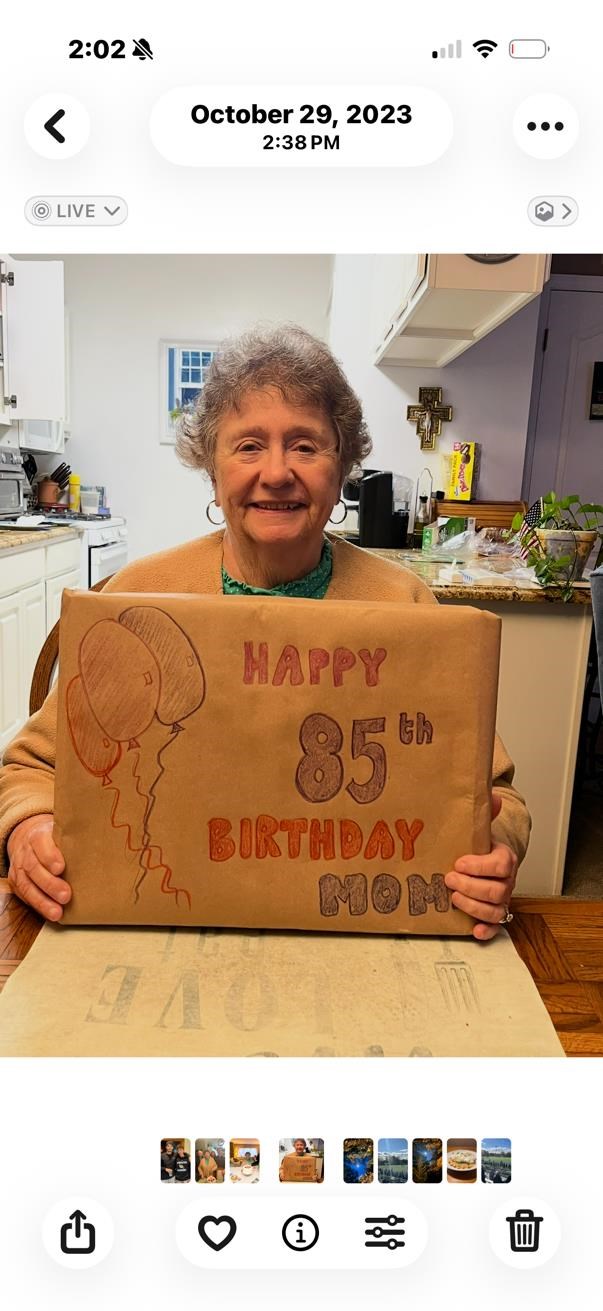 2:02
October 29, 2023
2:38 PM
LIVE
HAPPY
85th
BIRTHDAY
MOM
eat
LOVE